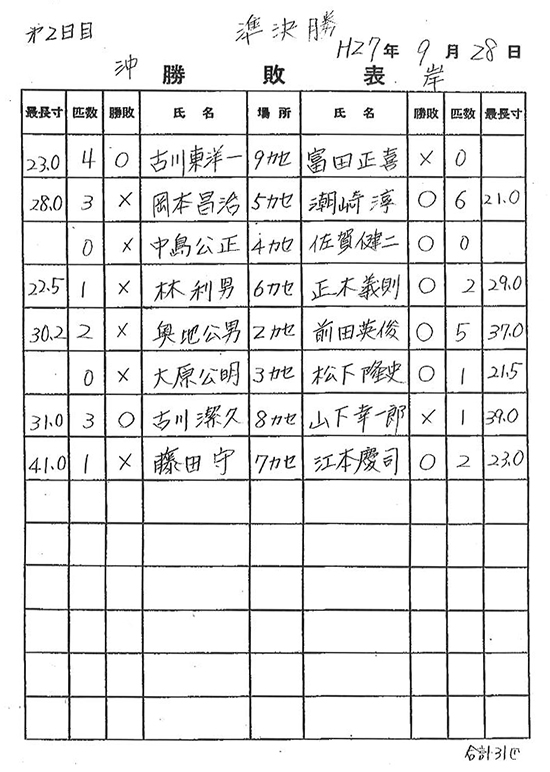 第2日目 準決勝
H27年 9月 28日
沖 勝敗表 岸
最長寸 匹数 勝敗 氏名 場所 氏名 勝敗 匹数 最長寸
23.0 4 ○ 古川東洋一 9カセ 富田正喜 × 0
28.0 3 × 岡本昌治 5カセ 潮崎淳 ○ 6 21.0
0 × 中島公正 4カセ 佐賀健二 ○ 0
22.5 1 × 林利男 6カセ 正木義則 ○ 2 29.0
30.2 2 × 奥地公男 2カセ 前田英俊 ○ 5 37.0
0 × 大原公明 3カセ 松下隆史 ○ 1 21.5
31.0 3 ○ 古川潔久 8カセ 山下幸一郎 × 1 39.0
41.0 1 × 藤田守 7カセ 江本慶司 ○ 2 23.0
合計31匹